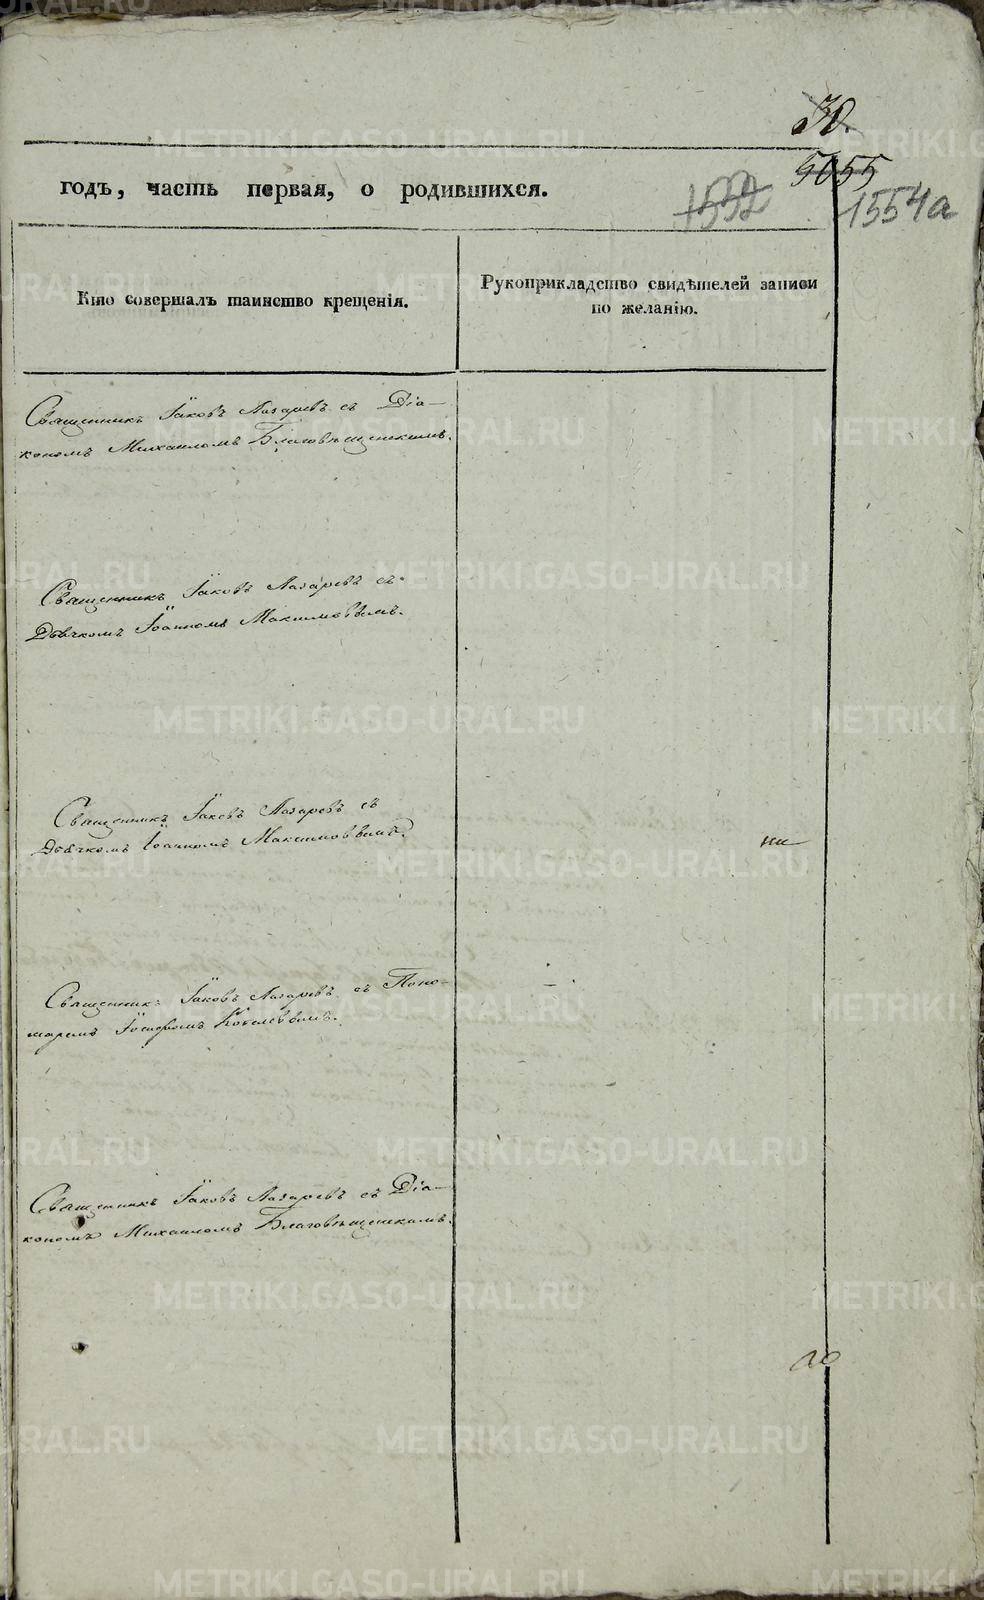 30.
5055
1532
1554а
годъ, часть первая, о родившихся.
Кто совершалъ таинство крещенія.
Рукоприкладство свидѣтелей записи
по желанію.
Священникъ Іаковъ Лазаревъ съ Діа-
кономъ Михаиломъ Благовѣщенскимъ.
Священникъ Іаковъ Лазаревъ съ
Дьячкомъ Іоанномъ Максимовымъ.
Священникъ Іаковъ Лазаревъ съ
Дьячкомъ Іоанномъ Максимовымъ.
ни
Священникъ Іаковъ Лазаревъ съ Поно-
маремъ Іосифомъ
Священникъ Іаковъ Лазаревъ съ Діа-
кономъ Михаиломъ Благовѣщенскимъ.
METRIKI.GASO-URAL.RU